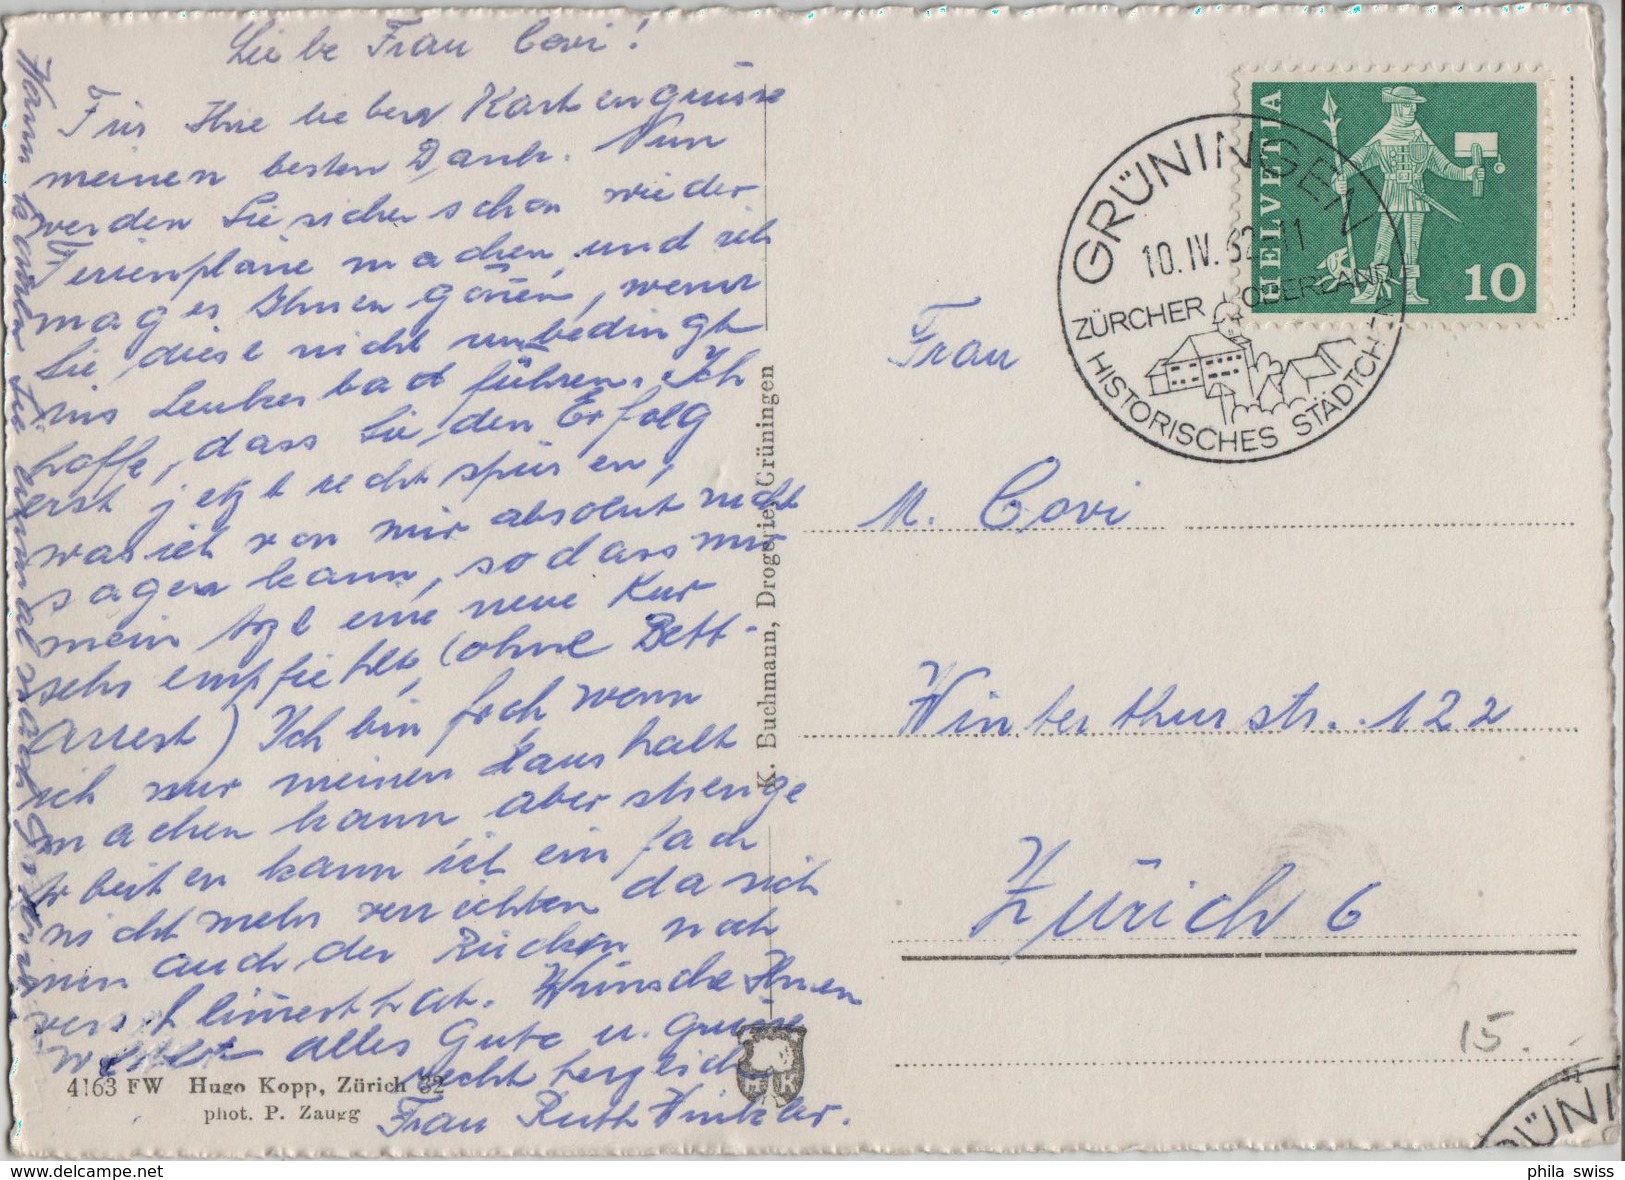 Liebe Frau Covi!
Für Ihre lieben Kartengrüsse
meinen besten Dank. Nun
werden Sie sicher schon wieder
Ferienpläne machen, und ich
mag es Ihnen gönnen, wenn
Sie diese nicht unbedingt
ins Leukerbad führen. Ich
hoffe, dass Sie den Erfolg
erst jetzt recht spüren,
was ich von mir absolut nicht
sagen kann, sodass mir
mein Arzt eine neue Kur
sehr empfiehlt, (ohne Bett-
Arrest) Ich bin froh, wenn
ich nur meinen Haushalt
machen kann aber strenge
Arbeiten kann ich einfach
nicht mehr verrichten da sich
nun auch der Rücken noch
verschlimmert hat. Wünsche Ihnen
weiter alles Gute u. grüsse
recht herzlich
Frau Ruth Winkler.
Wann kommen Sie einmal nach Grüningen
4163 FW Hugo Kopp, Zürich 32
phot. P. Zaugg
K. Buchmann, Drogerie, Grüningen
H K
HELVETIA
10
GRÜNINGEN
10.IV.62-11
ZÜRCHER OBERLAND
HISTORISCHES STÄDTCHEN
Frau
M. Covi
Winterthurstr. 122
Zürich 6
15.
ÜNI
phila swiss